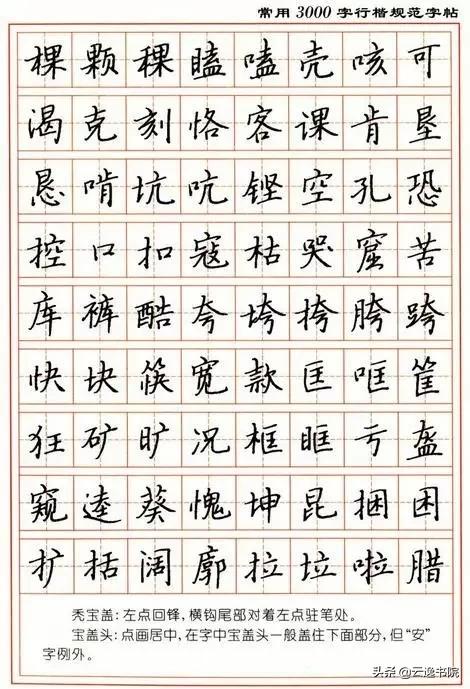 常用3000字行楷规范字帖
棵颗稞瞌嗑壳咳可
渴克刻恪客课肯垦
恳啃坑吭铿空孔恐
控口扣寇枯哭窟苦
库裤酷夸垮挎胯跨
快块筷宽款匡哐筐
狂矿旷况框眶亏盔
窥逵葵愧坤昆捆困
扩括阔廓拉垃啦腊
秃宝盖:左点回锋,横钩尾部对着左点驻笔处。
宝盖头:点画居中,在字中宝盖头一般盖住下面部分,但“安”
字例外。
头条@云逸书院